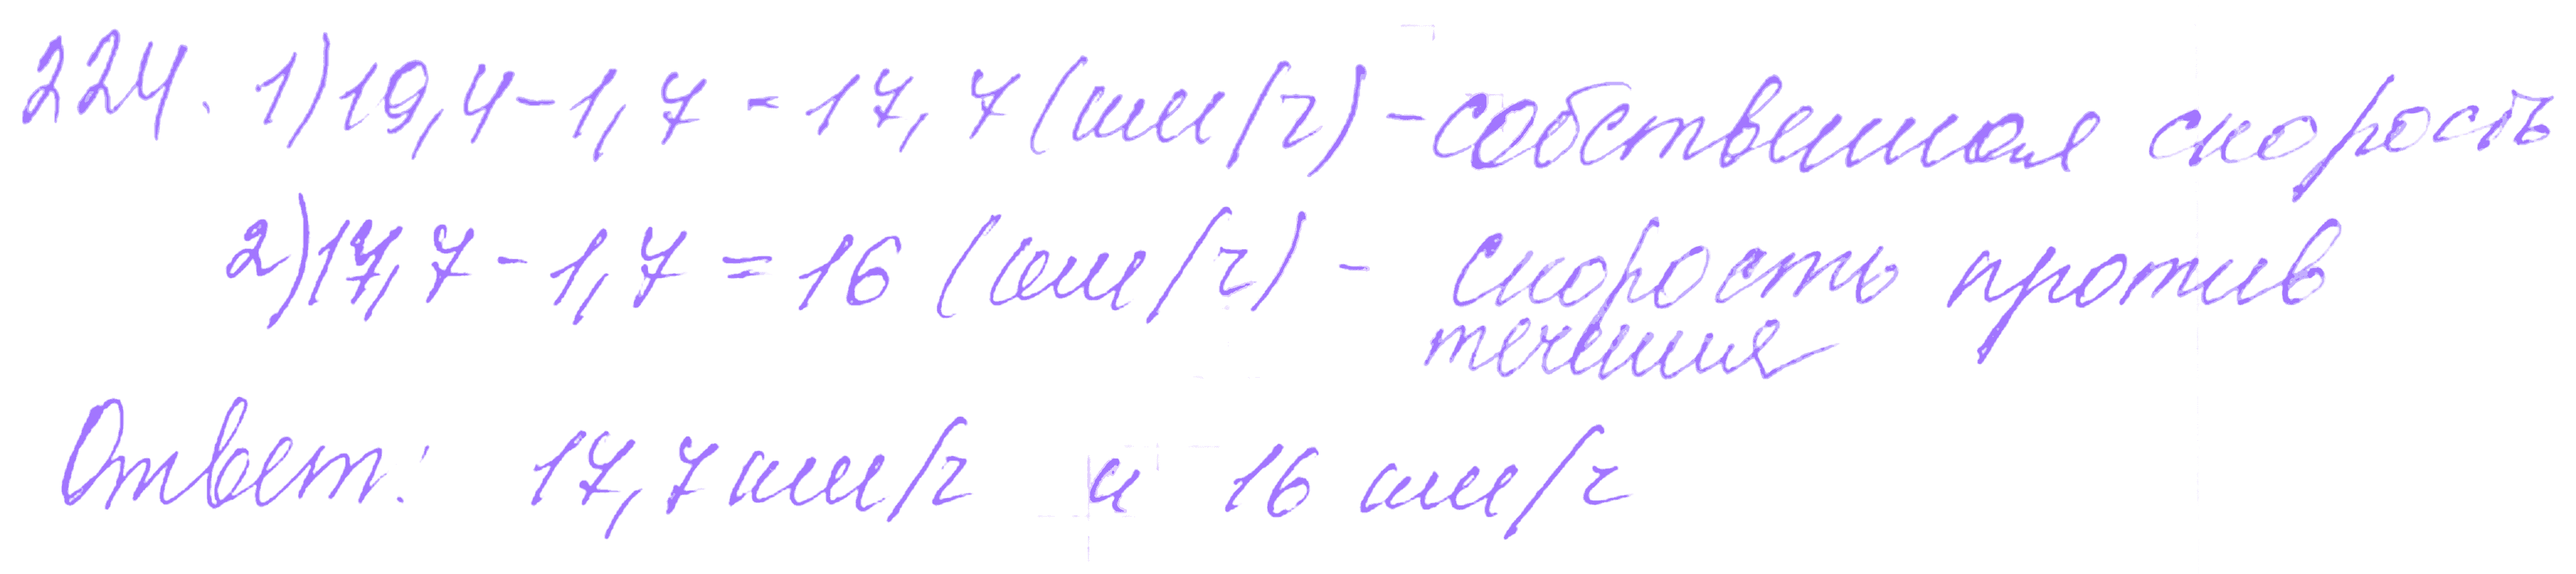 224. 1) 19,4 - 1,7 = 17,7 (км/ч) - собственная скорость
2) 17,7 - 1,7 = 16 (км/ч) - скорость против
течения
Ответ: 17,7 км/ч и 16 км/ч